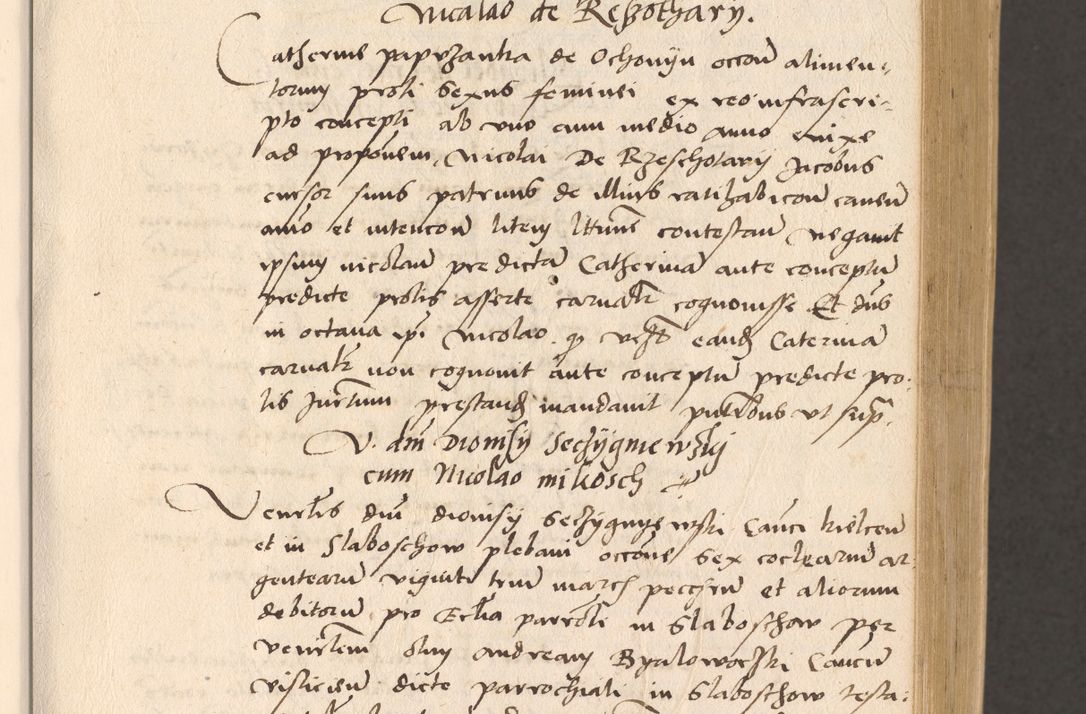 Nicolao de Rzothary.
Catherine papyzanka de Ochonyn occon alimen-
torum proli sexus feminei ex reo infrascri-
pto concepti ab uno cum medio anno enixe
ad proponem Nicolai De Rzescholarij Jacobus
cursor suus patruus de illius ratihabicone cauen
animo et intencon litem lttime contestan negauit
ipsum nicolaum predictam Catherinam ante conceptum
predicte prolis asserte carnaliter cognouisse Et dns
in octaua ipi Nicolao quod eandem Caterinam
carnaliter non cognouit ante conceptum predicte pro-
lis Jurtum prestandum mandauit pntibus ut supra.
V. dni Dionisy Seczygniewsky
cum Nicolao mikosch
Venerlis dni dionisy Seczygnyewski Canci kielcen
et in Slaboschow plebani occone sex coclearium ar-
gentearum viginti trium march peccrum et aliorum
debitorum pro Ecclia parrochli in Slaboschow per
venerlem olim andream Byalowoczki Cancum
visliciem dicte parrochiali in Slaboschow testa-